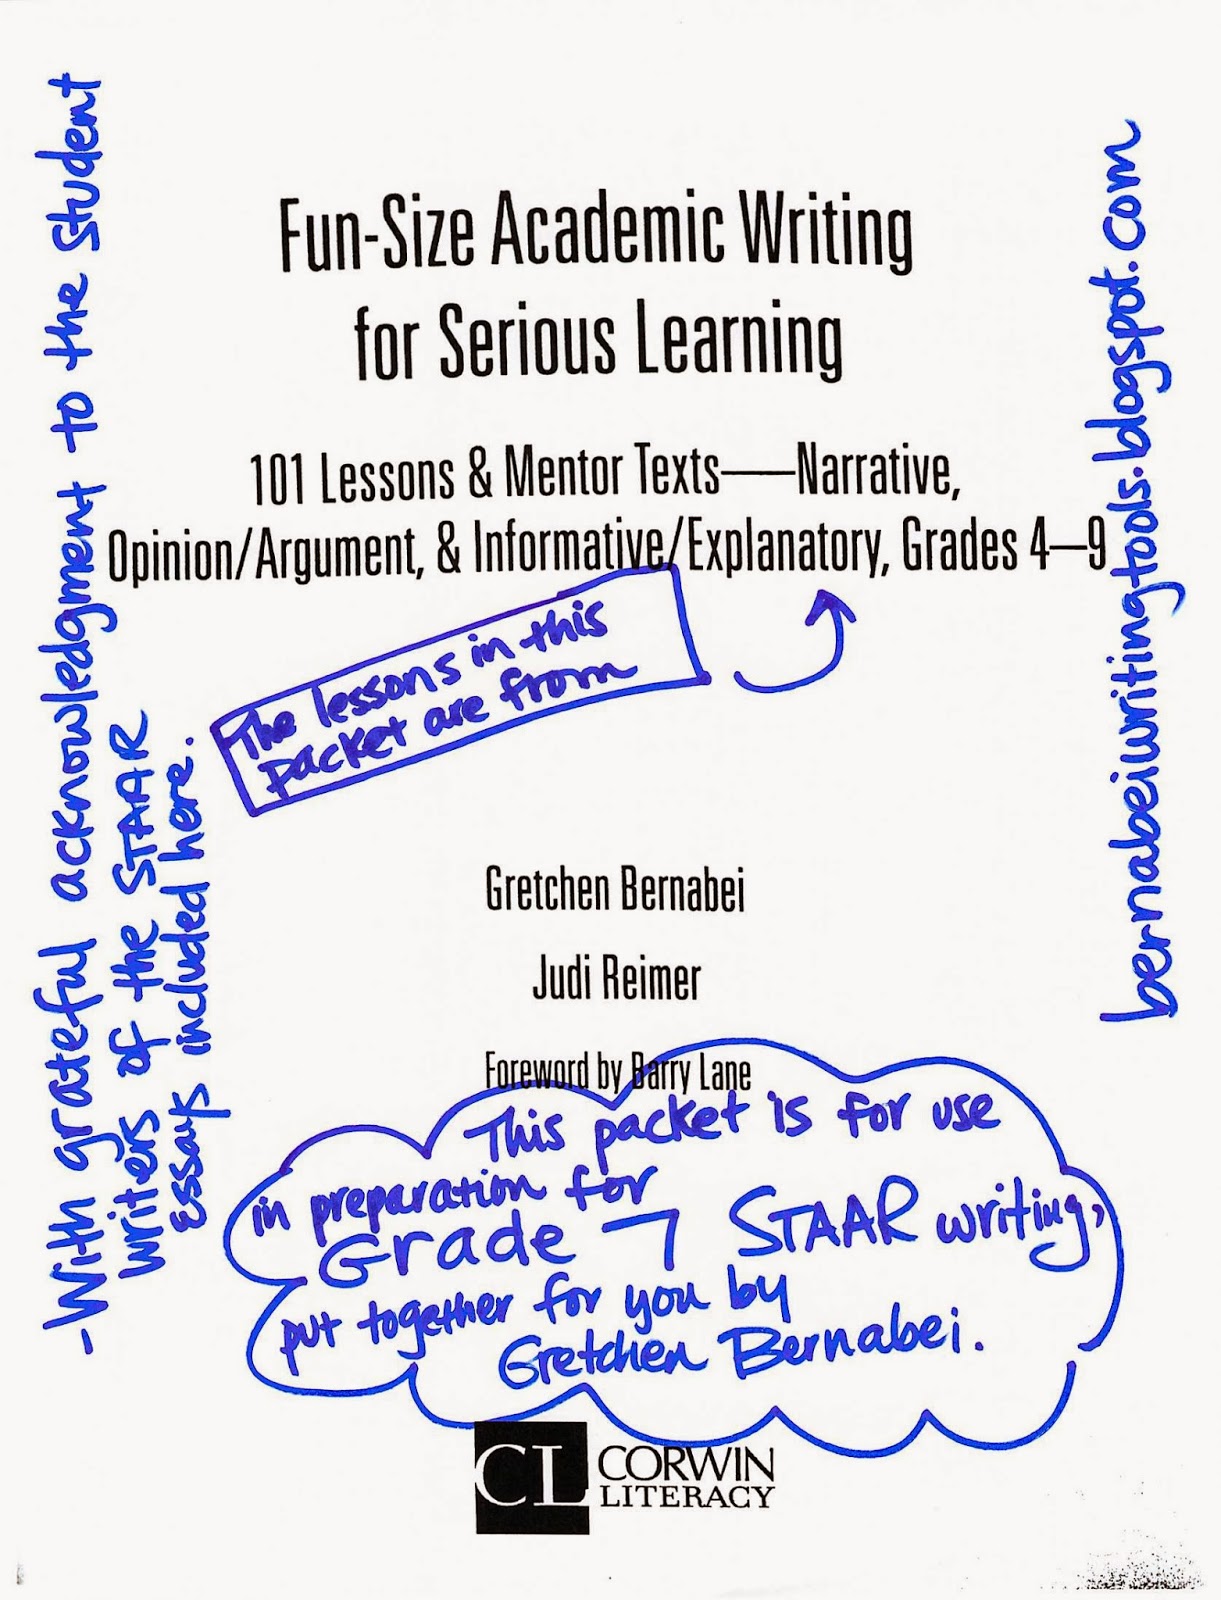 Fun-Size Academic Writing
for Serious Learning
101 Lessons & Mentor Texts—Narrative,
Opinion/Argument, & Informative/Explanatory, Grades 4–9
The lessons in this
packet are from
Gretchen Bernabei
Judi Reimer
Foreword by Barry Lane
This packet is for use
in preparation for
Grade 7 STAAR writing,
put together for you by
Gretchen Bernabei.
CL CORWIN
LITERACY
-With grateful acknowledgment to the student
writers of the STAAR
essays included here.
bernabeiwritingtools.blogspot.com